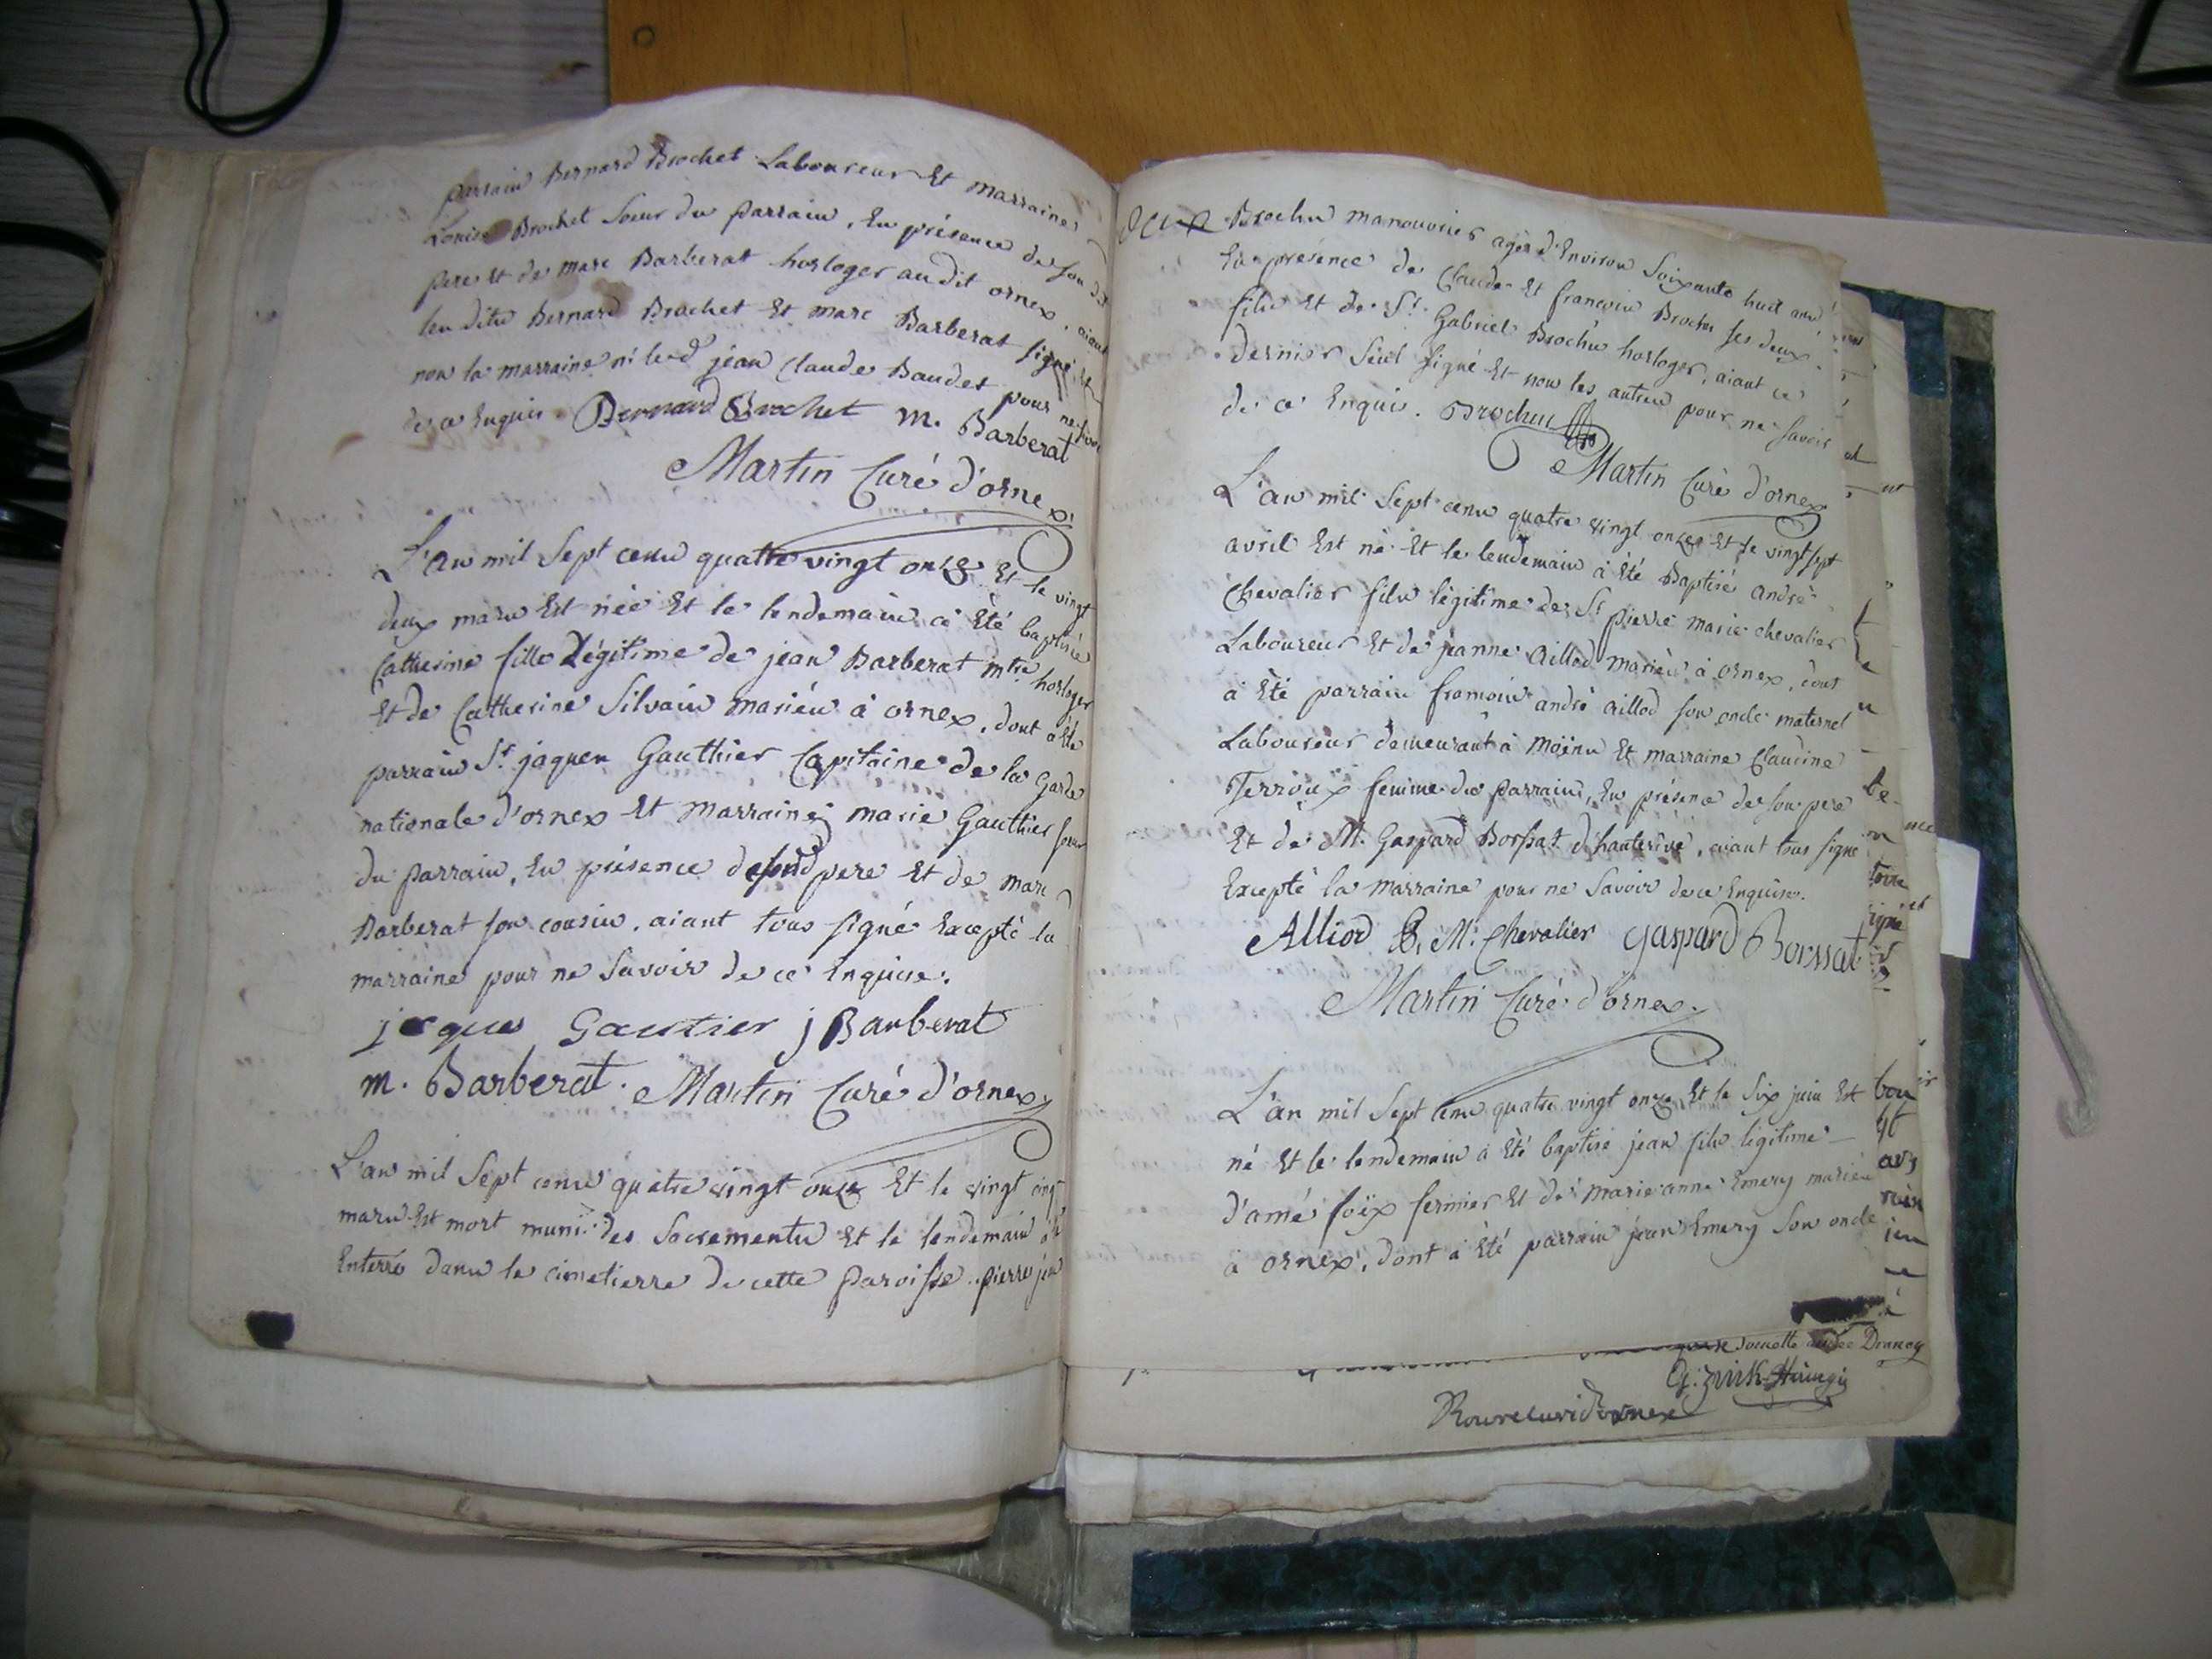 parrain Bernard Brochet Laboureur Et marraine
Louise Brochet soeur du parrain, En présence de son dit
pere Et de marc Barberat horloger au dit ornex, aiant
lesdits Bernard Brochet Et marc Barberat signé, Et
non la marraine ni led jean Claude Baudet pour ne savoir
de ce Enquis. Bernard Brochet m. Barberat
Martin Curé d'ornex
L'an mil Sept cens quattre vingt onze Et le vingt
deux mars Est née Et le lendemain a Eté baptisée
Catherine fille Légitime de jean Barberat mtre horloger
Et de Catherine Silvain mariés à ornex, dont a Eté
parrain Sr. jaques Gauthier Capitaine de la Garde
nationale d'ornex Et marraine marie Gauthier soeur
du parrain, En présence de sond pere Et de marc
Barberat son cousin, aiant tous signé Excepté la
marraine pour ne savoir de ce Enquise.
jaques Gautier j Barberat
m. Barberat. Martin Curé d'ornex
L'an mil Sept cens quatre vingt onze Et le vingt cinq
mars Est mort muni des Sacrements Et le lendemain a été
Enterré dans le cimetierre de cette paroisse pierre jean
Brochu manouvrier agés d'Environ Soixante huit ans
En présence de Claude Et francois Brochu ses deux
fils Et de Sr. Gabriel Brochu horloger, aiant ce
dernier seul signé Et non les autres pour ne savoir
de ce Enquis. Brochu
Martin Curé d'ornex
L'an mil Sept cens quatre vingt onze Et le vingt sept
avril Est né Et le lendemain à Eté Baptisé andré
Chevalier fils légitime de Sr pierre marie chevalier
Laboureur Et de jeanne Aillod mariés à ornex, dont
à Eté parrain francois andré aillod son oncle maternel
Laboureur demeurant à Moëns Et marraine Claudine
Terroux femme du parrain, En présence de son pere
Et de M. Gaspard Borssat d'hauterive, aiant tous signé
Excepté la marraine pour ne Savoir de ce Enquise.
Alliod P. M. Chevalier Gaspard Borssat
Martin Curé d'ornex
L'an mil Sept cens quatre vingt onze Et le Six juin Est
né Et le lendemain à Eté baptisé jean fils légitime
d'amé foëx fermier Et de marie anne Emery mariés
à ornex, dont à Eté parrain jean Emery son oncle